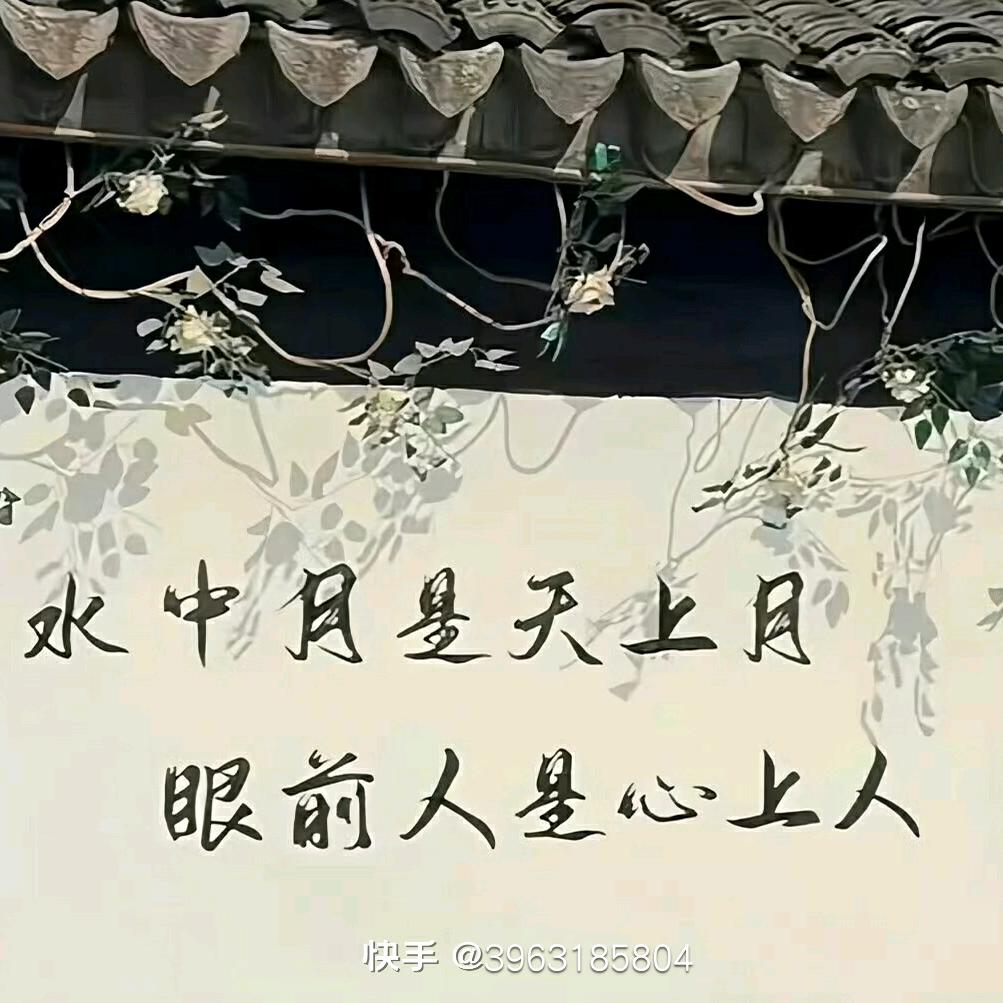 水中月是天上月
眼前人是心上人
快手 @3963185804